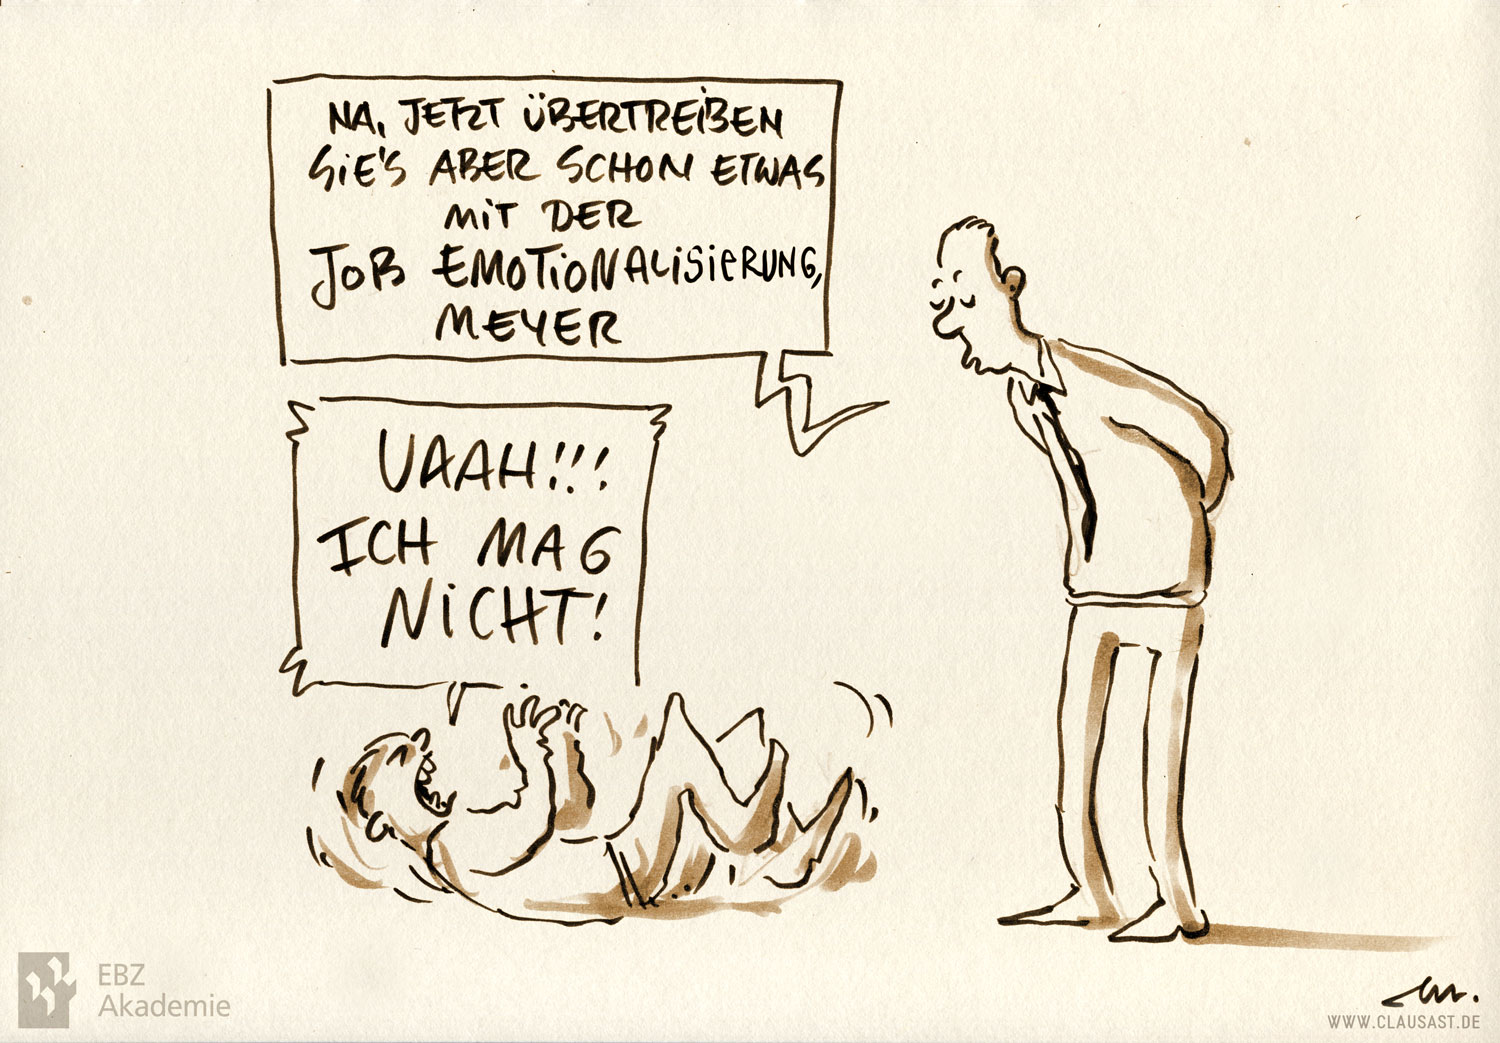 NA, JETZT ÜBERTREIBEN
SIE'S ABER SCHON ETWAS
MIT DER
JOB EMOTIONALISIERUNG,
MEYER
UAAH!!!
ICH MAG
NICHT!
EBZ
Akademie
WWW.CLAUSAST.DE